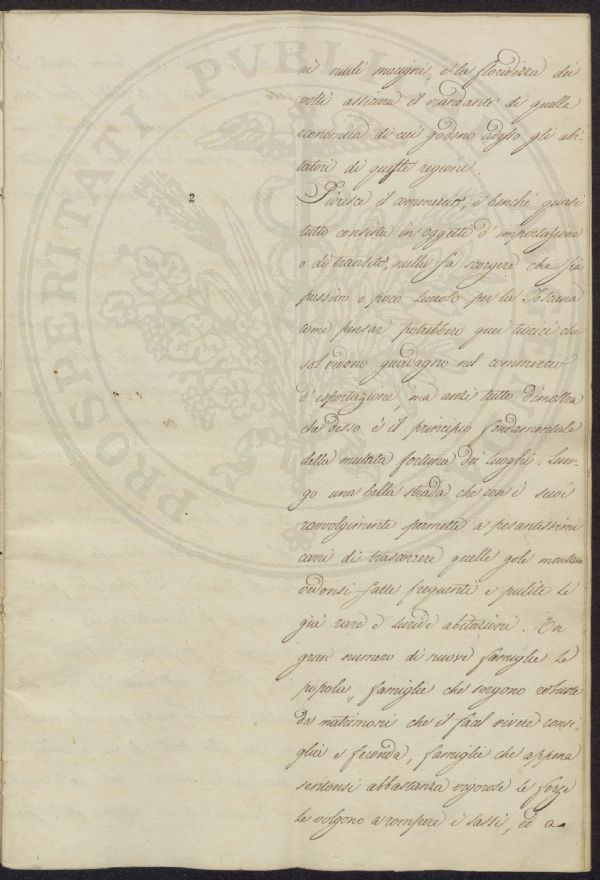 PROSPERITATI PVBLI
2
ni nudi macigni, e la floridezza dei
volti assicura il viandante di quella
economia di cui godono adesso gli abi-
tatori di queste regioni.
Fiorisce il commercio, e benchè quasi
tutto consista in oggetti d'importazione
o di transito, nulla fa scorgere che sia
passivo o poco lucroso per la Toscana
come pensar potrebbero quei teorici che
sol vedono guadagno nel commercio
d'esportazione, ma anzi tutto dimostra
che desso è il principio fondamentale
della mutata fortuna dei luoghi. Lun-
go una bella strada che con i suoi
ravvolgimenti permette a pesantissimi
carri di trascorrere quelle gole montane
vedonsi fatte frequenti e pulite le
già rare e luride abitazioni. Un
gran numero di nuove famiglie le
popola, famiglie che sorgono robuste
da matrimoni che il facil vivere consi-
glia e feconda, famiglie che appena
sentonsi abbastanza vigorose le forze
le volgono a rompere i sassi, ed a